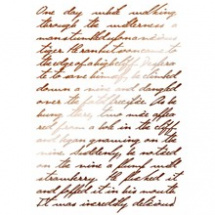 One day while walking
through the wilderness a
man stumbled upon a vicious
tiger. He ran but soon came to
the edge of a high cliff. Despera
te to save himself, he climbed
down a vine and dangled
over the fatal precipice. As he
hung there, two mice appea
red from a hole in the cliff
and began gnawing on the
vine. Suddenly, he noticed
on the vine a plump wild
strawberry. He plucked it
and popped it in his mouth.
It was incredibly delicious!